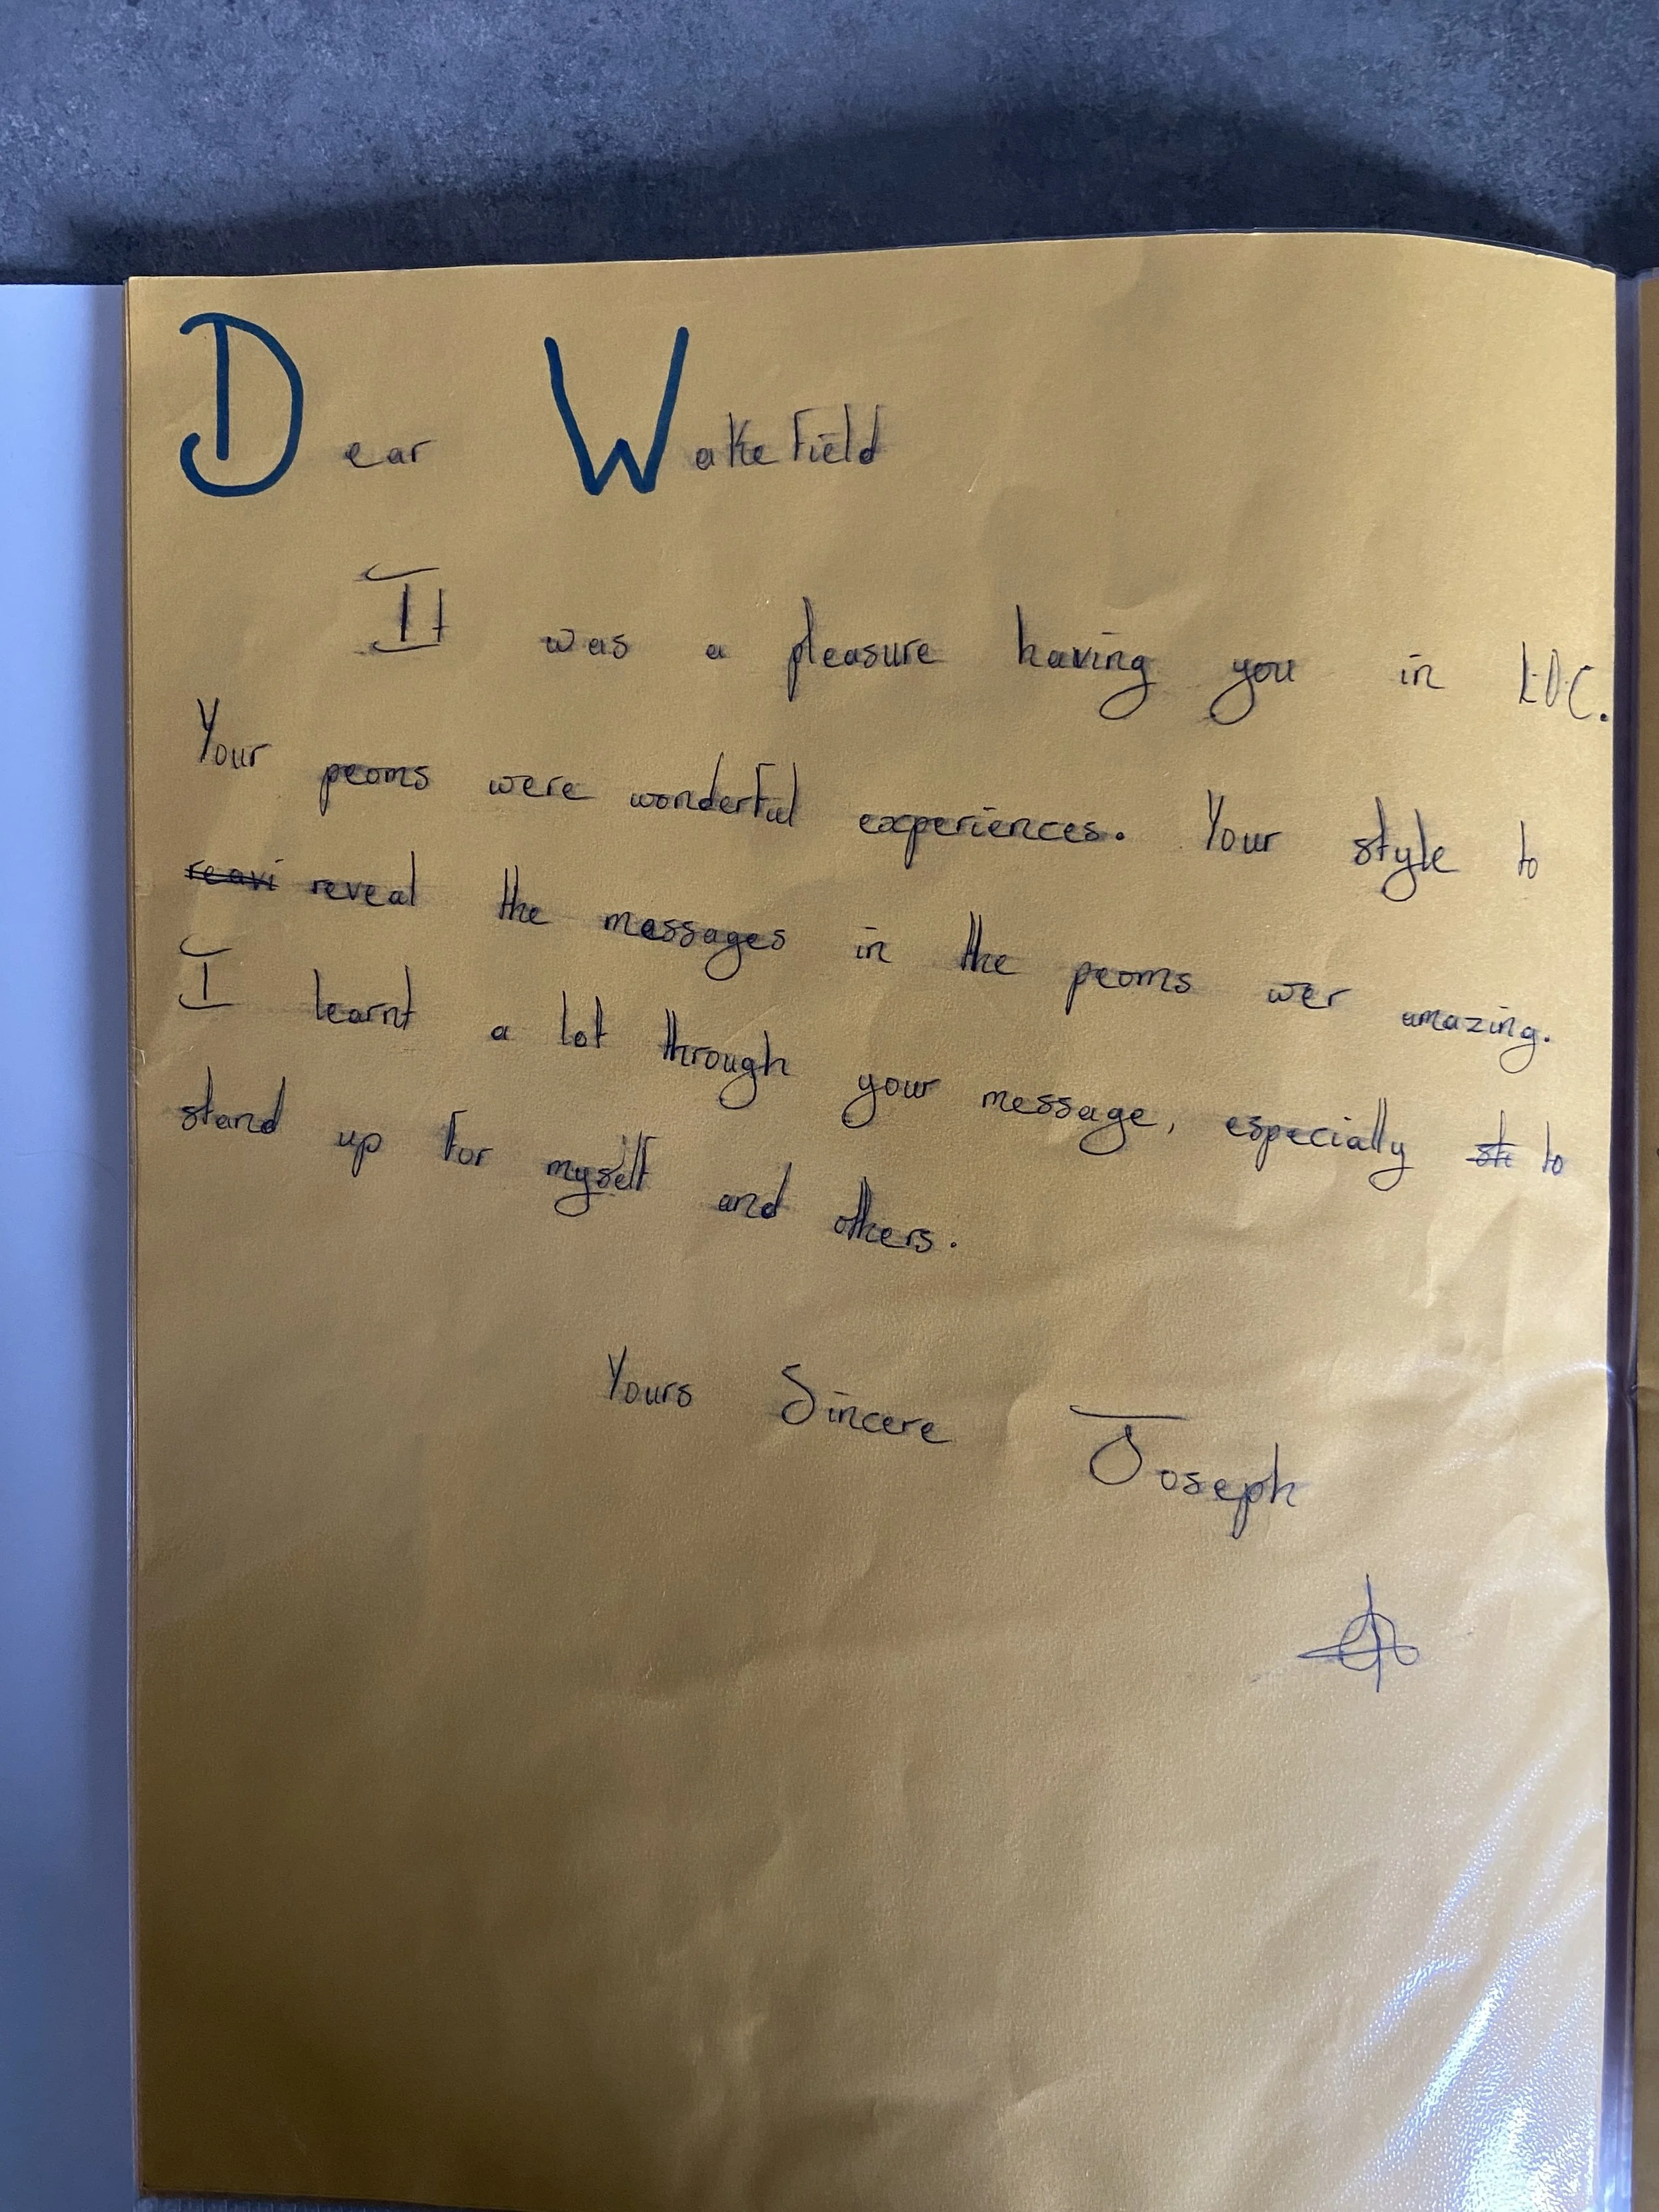 Dear Wakefield
It was a pleasure having you in
Your peoms were wonderful experiences. Your style to
reavi reveal the messages in the peoms wer amazing.
I learnt a lot through your message, especially st to
stand up for myself and others.
Yours Sincere Joseph